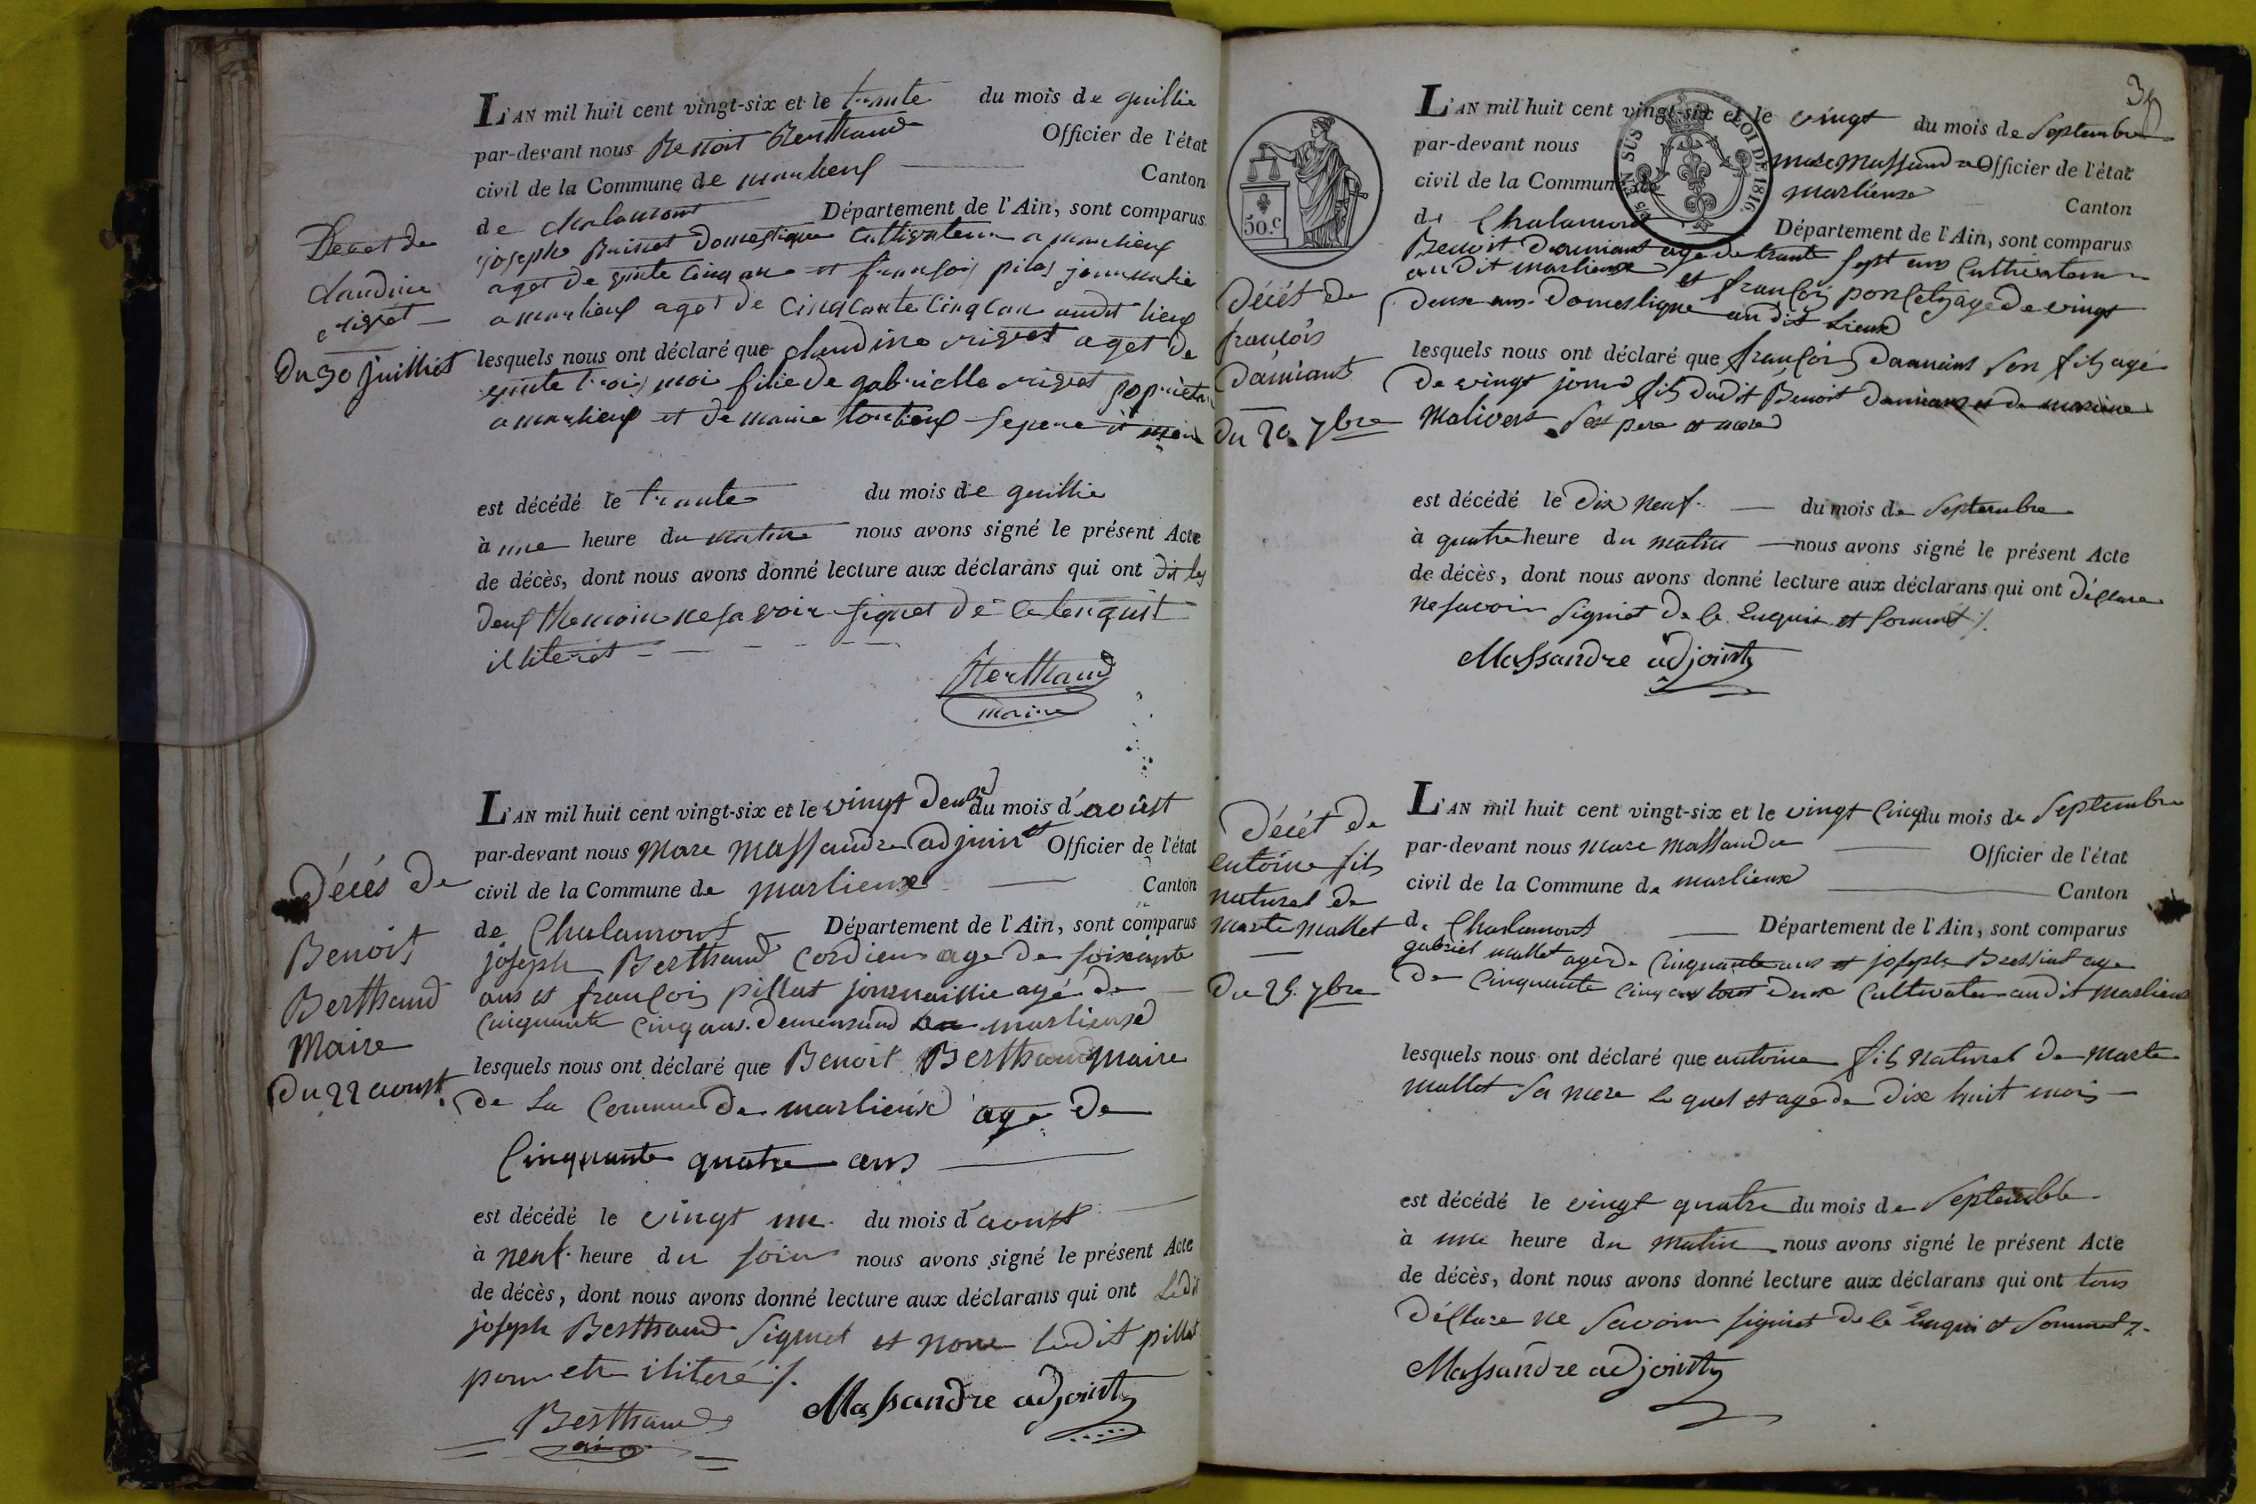 L'AN mil huit cent vingt-six et le trante du mois de guillie
par-devant nous Benoit Berthaud Officier de l'état
civil de la Commune de marlieux Canton
de Chalamont Département de l'Ain, sont comparus
joseph Domestique Cultivateur a marlieux
aget de et françois pilas journalie
a marlieux aget de Cinqcante Cinq an audit lieux
lesquels nous ont déclaré que claudine aget de
moi filie de gabrielle
a marlieux et de marie
Decet de
claudine
du 30 Juilliet
est décédé le trante du mois de guillie
à une heure du matin nous avons signé le présent Acte
de décès, dont nous avons donné lecture aux déclarans qui ont dit les
deux themoin ne savoir signet de ce lenquit
il literet
Berthaud
maire
L'AN mil huit cent vingt-six et le vingt deux du mois d'août
par-devant nous Marc Massandre adjoint Officier de l'état
civil de la Commune de marlieux Canton
de Chalamont Département de l'Ain, sont comparus
joseph Berthaud Cordier age de soixante
ans et françois pillat journaillie agé de
cinquante cinq ans marlieux
lesquels nous ont déclaré que Benoit Berthaud Maire
de La Commune de marlieux age de
Cinquante quatre ans
Décés de
Benoit
Berthaud
Maire
du 22 aoust
est décédé le vingt un du mois d'aoust
à neuf heure du soir nous avons signé le présent Acte
de décès, dont nous avons donné lecture aux déclarans qui ont Ledit
joseph Berthaud Signet et non ledit pillat
pour etre iliteré
Berthaud
Massandre adjoint
50.c
EN SUS
LOI DE 1816.
L'AN mil huit cent vingt-six et le vingt du mois de Septembre
par-devant nous marc Massandre Officier de l'état
civil de la Commune de marlieux Canton
de Chalamont Département de l'Ain, sont comparus
Benoit Damians age de trante sept ans Cultivateur
audit marlieux et françois poncet age de vingt
deux ans domestique audit Lieux
lesquels nous ont déclaré que françois Damians son fils agé
de vingt jours fils dudit Benoit Damians et de
Malivert Ses pere et mere
Décét de
francois
Damians
du 20 7bre
est décédé le Dix neuf du mois de Septembre
à quatre heure du matin nous avons signé le présent Acte
de décès, dont nous avons donné lecture aux déclarans qui ont déclare
ne savoir signiet de ce Enquis et Sommet
Massandre adjoint
L'AN mil huit cent vingt-six et le vingt Cinq du mois de Septembre
par-devant nous marc Massandre Officier de l'état
civil de la Commune de marlieux Canton
de Chalamont Département de l'Ain, sont comparus
gabriel mallet age de Cinquante ans et joseph age
de Cinquante cinq ans tout deux Cultivateur audit marlieux
lesquels nous ont déclaré que antoine fils naturel de marte
mallet Sa mere Le quel et age de dix huit mois
Décét de
antoine fils
naturel de
marte mallet
du 25 7bre
est décédé le vingt quatre du mois de Septembre
à une heure du matin nous avons signé le présent Acte
de décès, dont nous avons donné lecture aux déclarans qui ont tous
déclare ne Savoir signiet de ce Enquis et Sommet
Massandre adjoint